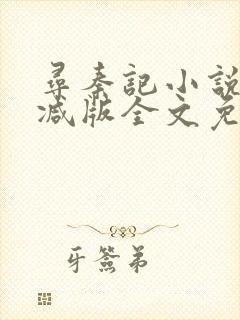 尋秦記小說
减版全文免
牙簽弟